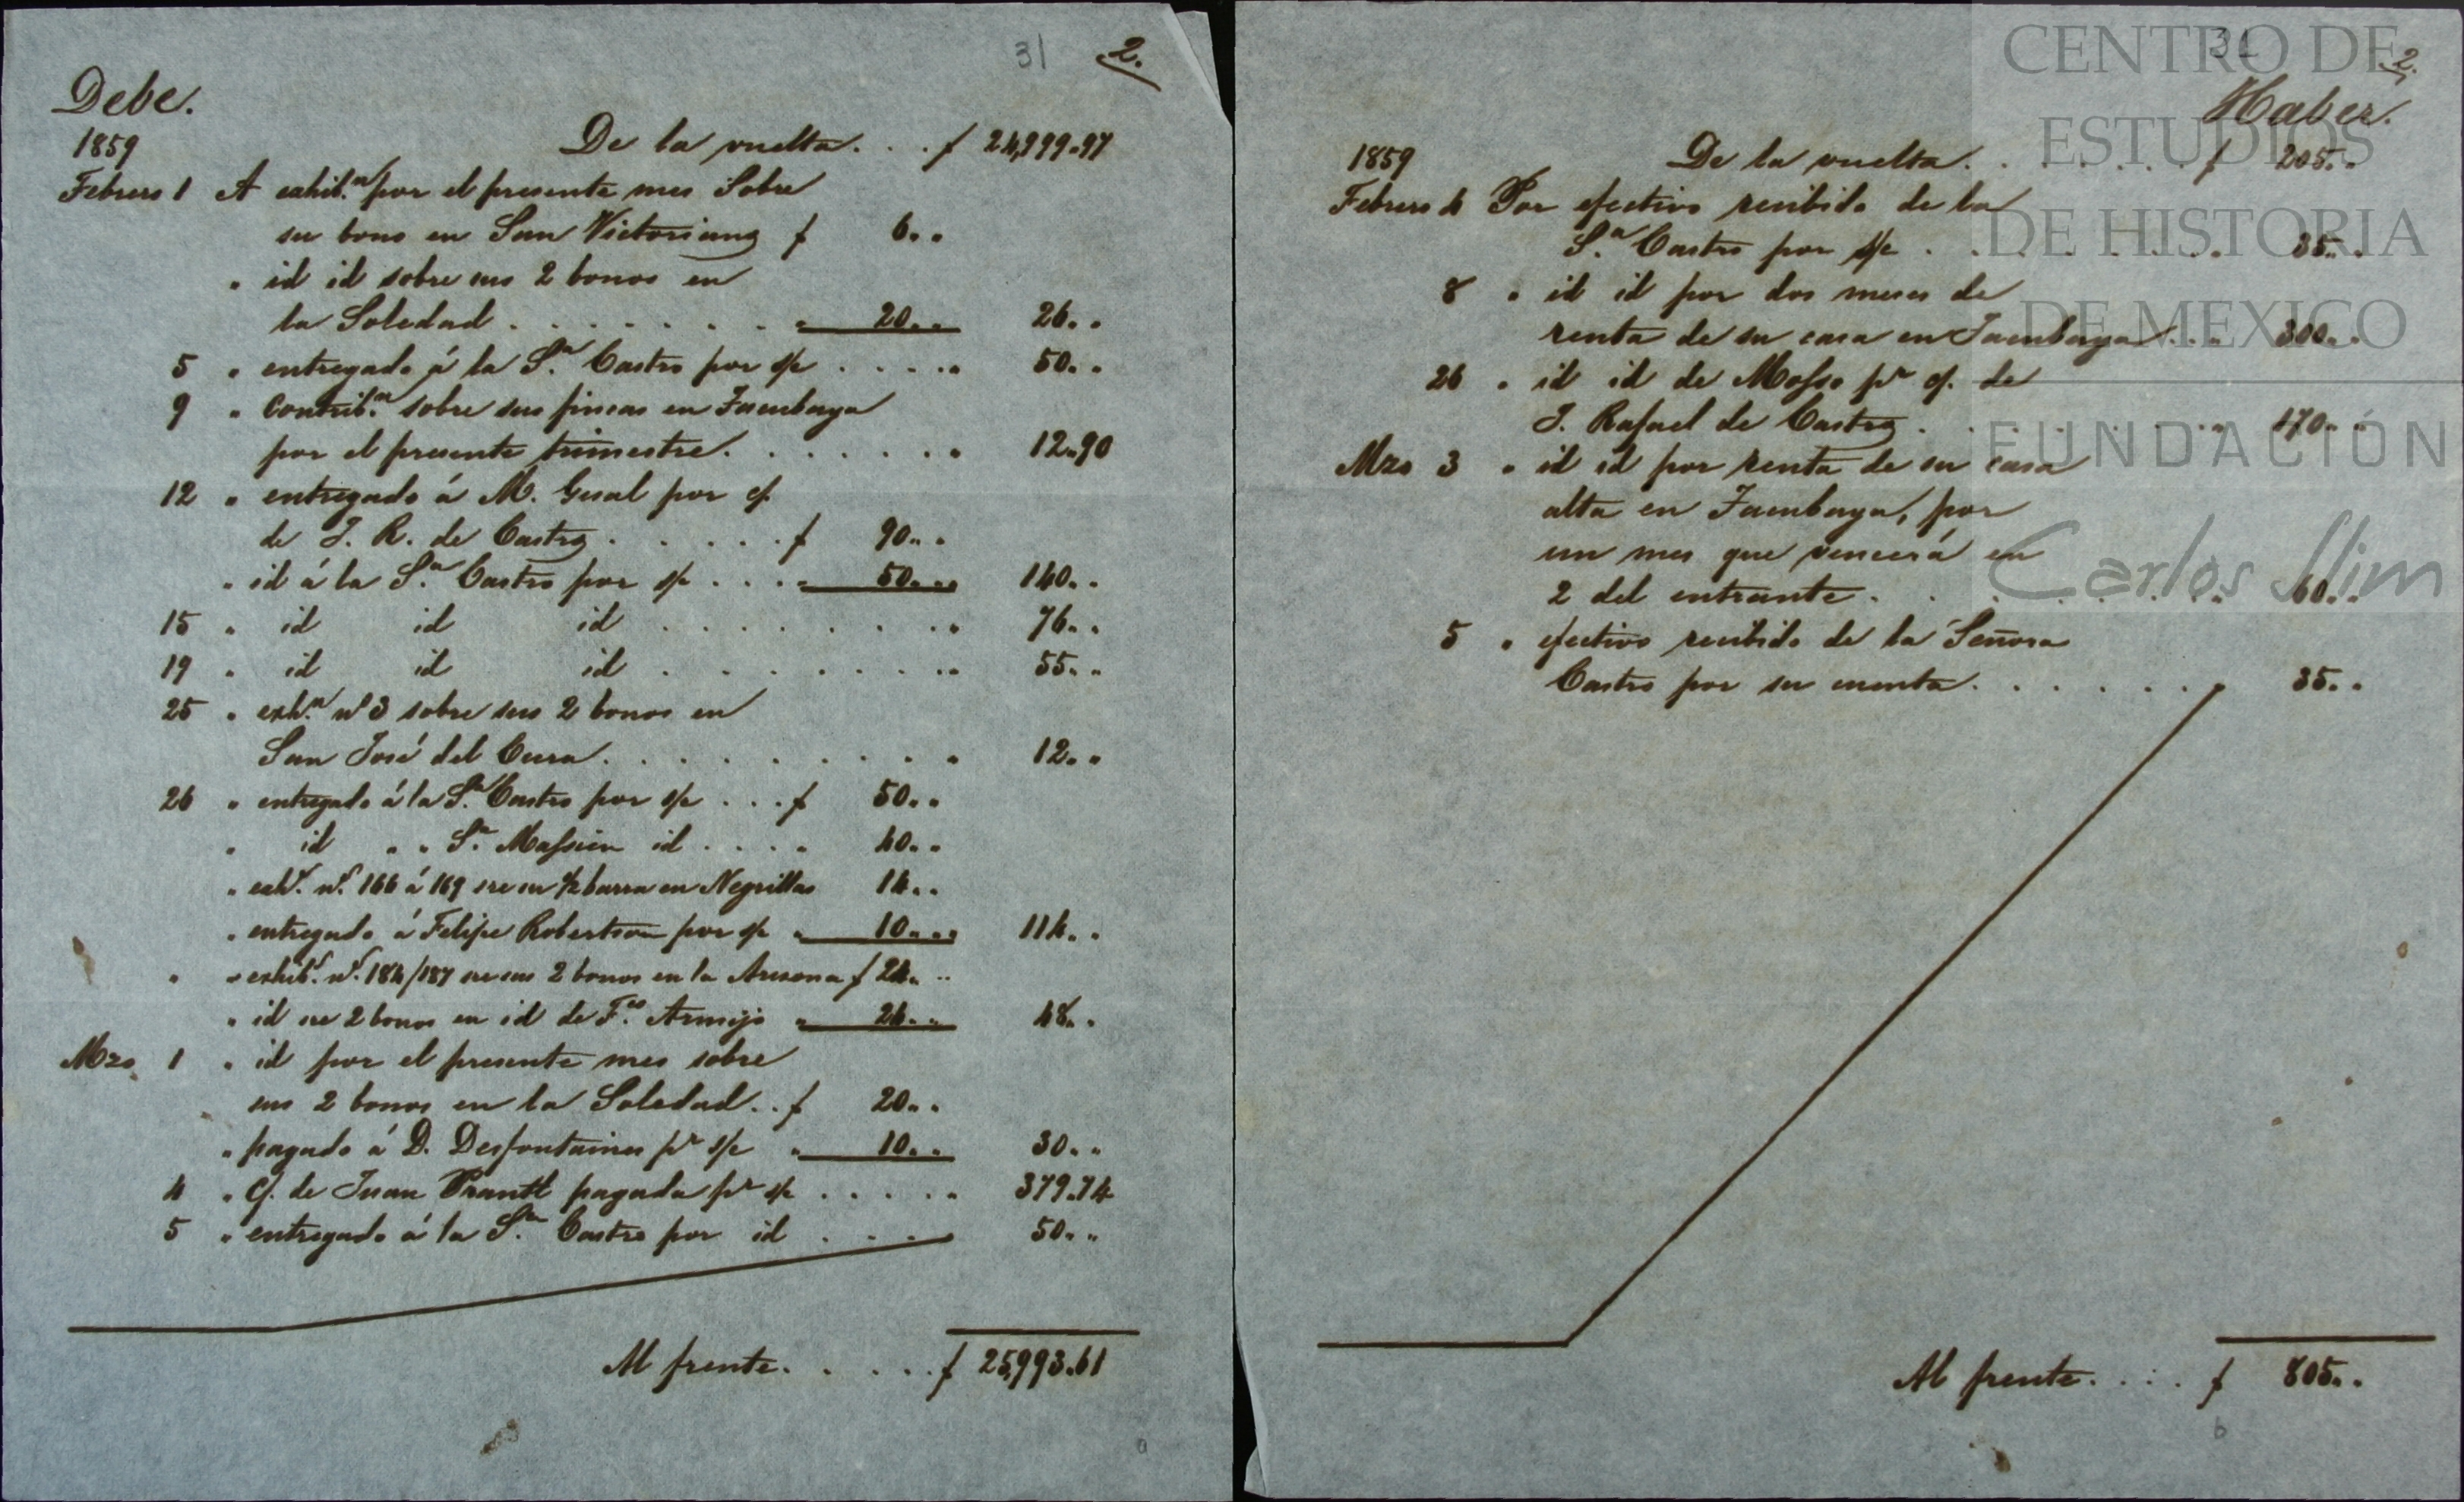 31 2.
Debe.
1859 De la vuelta. . . $ 24,999.97
Febrero 1 A exhib.n por el presente mes Sobre
su bono en San Victoriano $ 6.. 
" id id sobre sus 2 bonos en
la Soledad . . . . . . . " 20.. 26..
5 " entregado á la S.a Castro por s/c . . . . . 50..
9 " Contrib.n sobre sus fincas en Tacubaya
por el presente trimestre. . . . . . . " 12.90
12 " entregado á M. Gual por c/.
de J. R. de Castro . . . . . $ 90..
" id á la S.a Castro por s/c . . . " 50.. 140..
15 " id id id . . . . . . . . " 76..
19 " id id id . . . . . . . . " 55..
25 " exh.n nº 3 sobre sus 2 bonos en
San José del Cura. . . . . . . . . " 12..
26 " entregado á la S.a Castro por s/c . . . $ 50..
" id " " S.a Massieu id . . . . " 40..
" exh.s n.s 166 á 169 sre su ½ barra en Negrillas 14..
" entregado á Felipe Robertson por s/c " 10.. 114..
" " exhib.s n.s 184/187 sre sus 2 bonos en la Arizona $ 24..
" id sre 2 bonos en id de F.co Armijo " 24.. 48..
Mzo 1 " id por el presente mes sobre
sus 2 bonos en la Soledad. . $ 20..
" pagado á D. Desfontaines pr s/c " 10.. 30..
4 " C/. de Juan Prantl pagada pr s/c . . . . . 379.74
5 " entregado á la S.a Castro por id . . . . 50..
Al frente. . . . . $ 25,993.61
a
31 2.
Haber.
1859 De la vuelta. . . . . . . $ 205..
Febrero 4 Por efectivo recibido de la
S.a Castro por s/c . . . . . . . . 35..
8 " id id por dos meses de
renta de su casa en Tacubaya . . " 300..
26 " id id de Mosso pr c/. de
J. Rafael de Castro . . . . . . . " 170..
Mzo 3 " id id por renta de su casa
alta en Tacubaya, por
un mes que vencerá en
2 del entrante. . . . . . . . " 60..
5 " efectivo recibido de la Señora
Castro por su cuenta. . . . . . " 35..
Al frente. . . . $ 805..
b
CENTRO DE
ESTUDIOS
DE HISTORIA
DE MEXICO
FUNDACIÓN
Carlos Slim